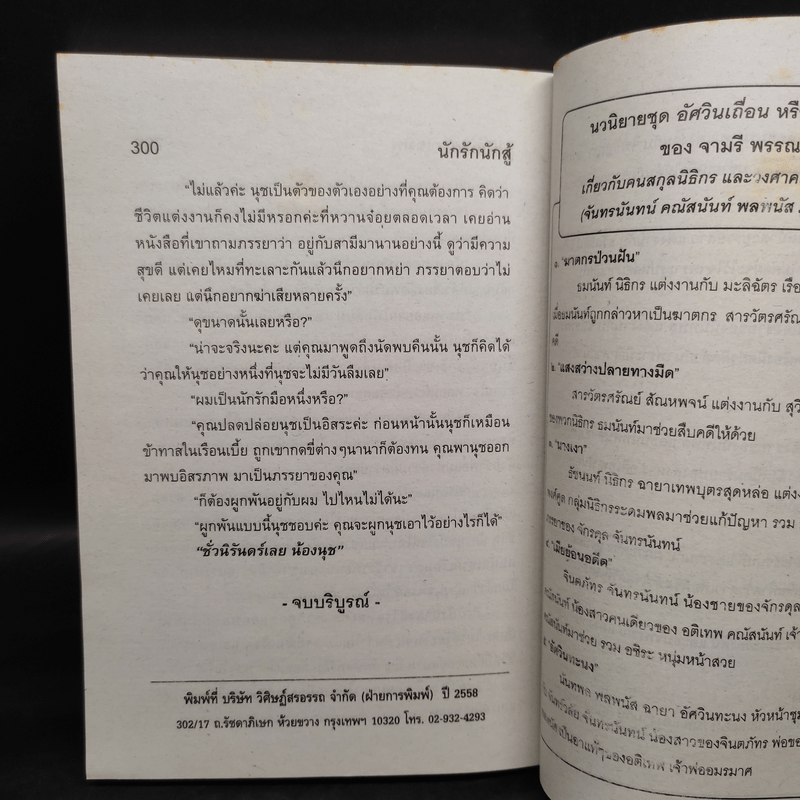 300
นักรักนักสู้
“ไม่แล้วค่ะ นุชเป็นตัวของตัวเองอย่างที่คุณต้องการ คิดว่า
ชีวิตแต่งงานก็คงไม่มีหรอกค่ะที่หวานจ๋อยตลอดเวลา เคยอ่าน
หนังสือที่เขาถามภรรยาว่า อยู่กับสามีมานานอย่างนี้ ดูว่ามีความ
สุขดี แต่เคยไหมที่ทะเลาะกันแล้วนึกอยากหย่า ภรรยาตอบว่าไม่
เคยเลย แต่นึกอยากฆ่าเสียหลายครั้ง”
“ดุขนาดนั้นเลยหรือ?”
“น่าจะจริงนะคะ แต่คุณมาพูดถึงนัดพบคืนนั้น นุชก็คิดได้
ว่าคุณให้นุชอย่างหนึ่งที่นุชจะไม่มีวันลืมเลย”
“ผมเป็นนักรักมือหนึ่งหรือ?”
“คุณปลดปล่อยนุชเป็นอิสระค่ะ ก่อนหน้านั้นนุชก็เหมือน
ข้าทาสในเรือนเบี้ย ถูกเขากดขี่ต่างๆนานาก็ต้องทน คุณพานุชออก
มาพบอิสรภาพ มาเป็นภรรยาของคุณ”
“ก็ต้องผูกพันอยู่กับผม ไปไหนไม่ได้นะ”
“ผูกพันแบบนี้นุชชอบค่ะ คุณจะผูกนุชเอาไว้อย่างไรก็ได้”
“ชั่วนิรันดร์เลย น้องนุช”
- จบบริบูรณ์ -
พิมพ์ที่ บริษัท วิศิษฎ์สรอรรถ จำกัด (ฝ่ายการพิมพ์) ปี 2558
302/17 ถ.รัชดาภิเษก ห้วยขวาง กรุงเทพฯ 10320 โทร. 02-932-4293
นวนิยายชุด อัศวินเถื่อน หรือ
ของ จามรี พรรณ
เกี่ยวกับคนสกุลนิธิกร และวงศาค
(จันทรนันทน์ คณัสนันท์ พลพนัส
๑. “ฆาตกรป่วนฝัน”
ธมนันท์ นิธิกร แต่งงานกับ มะลิฉัตร เรือ
เมื่อธมนันท์ถูกกล่าวหาเป็นฆาตกร สารวัตรศรัณ
คดี
๒. “แสงสว่างปลายทางมืด”
สารวัตรศรัณย์ สัณหพจน์ แต่งงานกับ สุวิ
ของพวกนิธิกร ธมนันท์มาช่วยสืบคดีให้ด้วย
๓. “นางเงา”
ธัชนนท์ นิธิกร ฉายาเทพบุตรสุดหล่อ แต่ง
กลุ่มนิธิกรระดมพลมาช่วยแก้ปัญหา รวม
ภรรยาของ จักรตุล จันทรนันทน์
๔. “เมียย้อนอดีต”
จินตภัทร จันทรนันทน์ น้องชายของจักรตุล
คณัสนันท์ น้องสาวคนเดียวของ อติเทพ คณัสนันท์ เจ้า
คณัสนันท์มาช่วย รวม อชิระ หนุ่มหน้าสวย
๕. “อัศวินทะนง”
นันทพล พลพนัส ฉายา อัศวินทะนง หัวหน้าชุม
จันทะนันทน์ น้องสาวของจินตภัทร พ่อของ
เป็นอาแท้ๆของอติเทพ เจ้าพ่ออมรมาศ